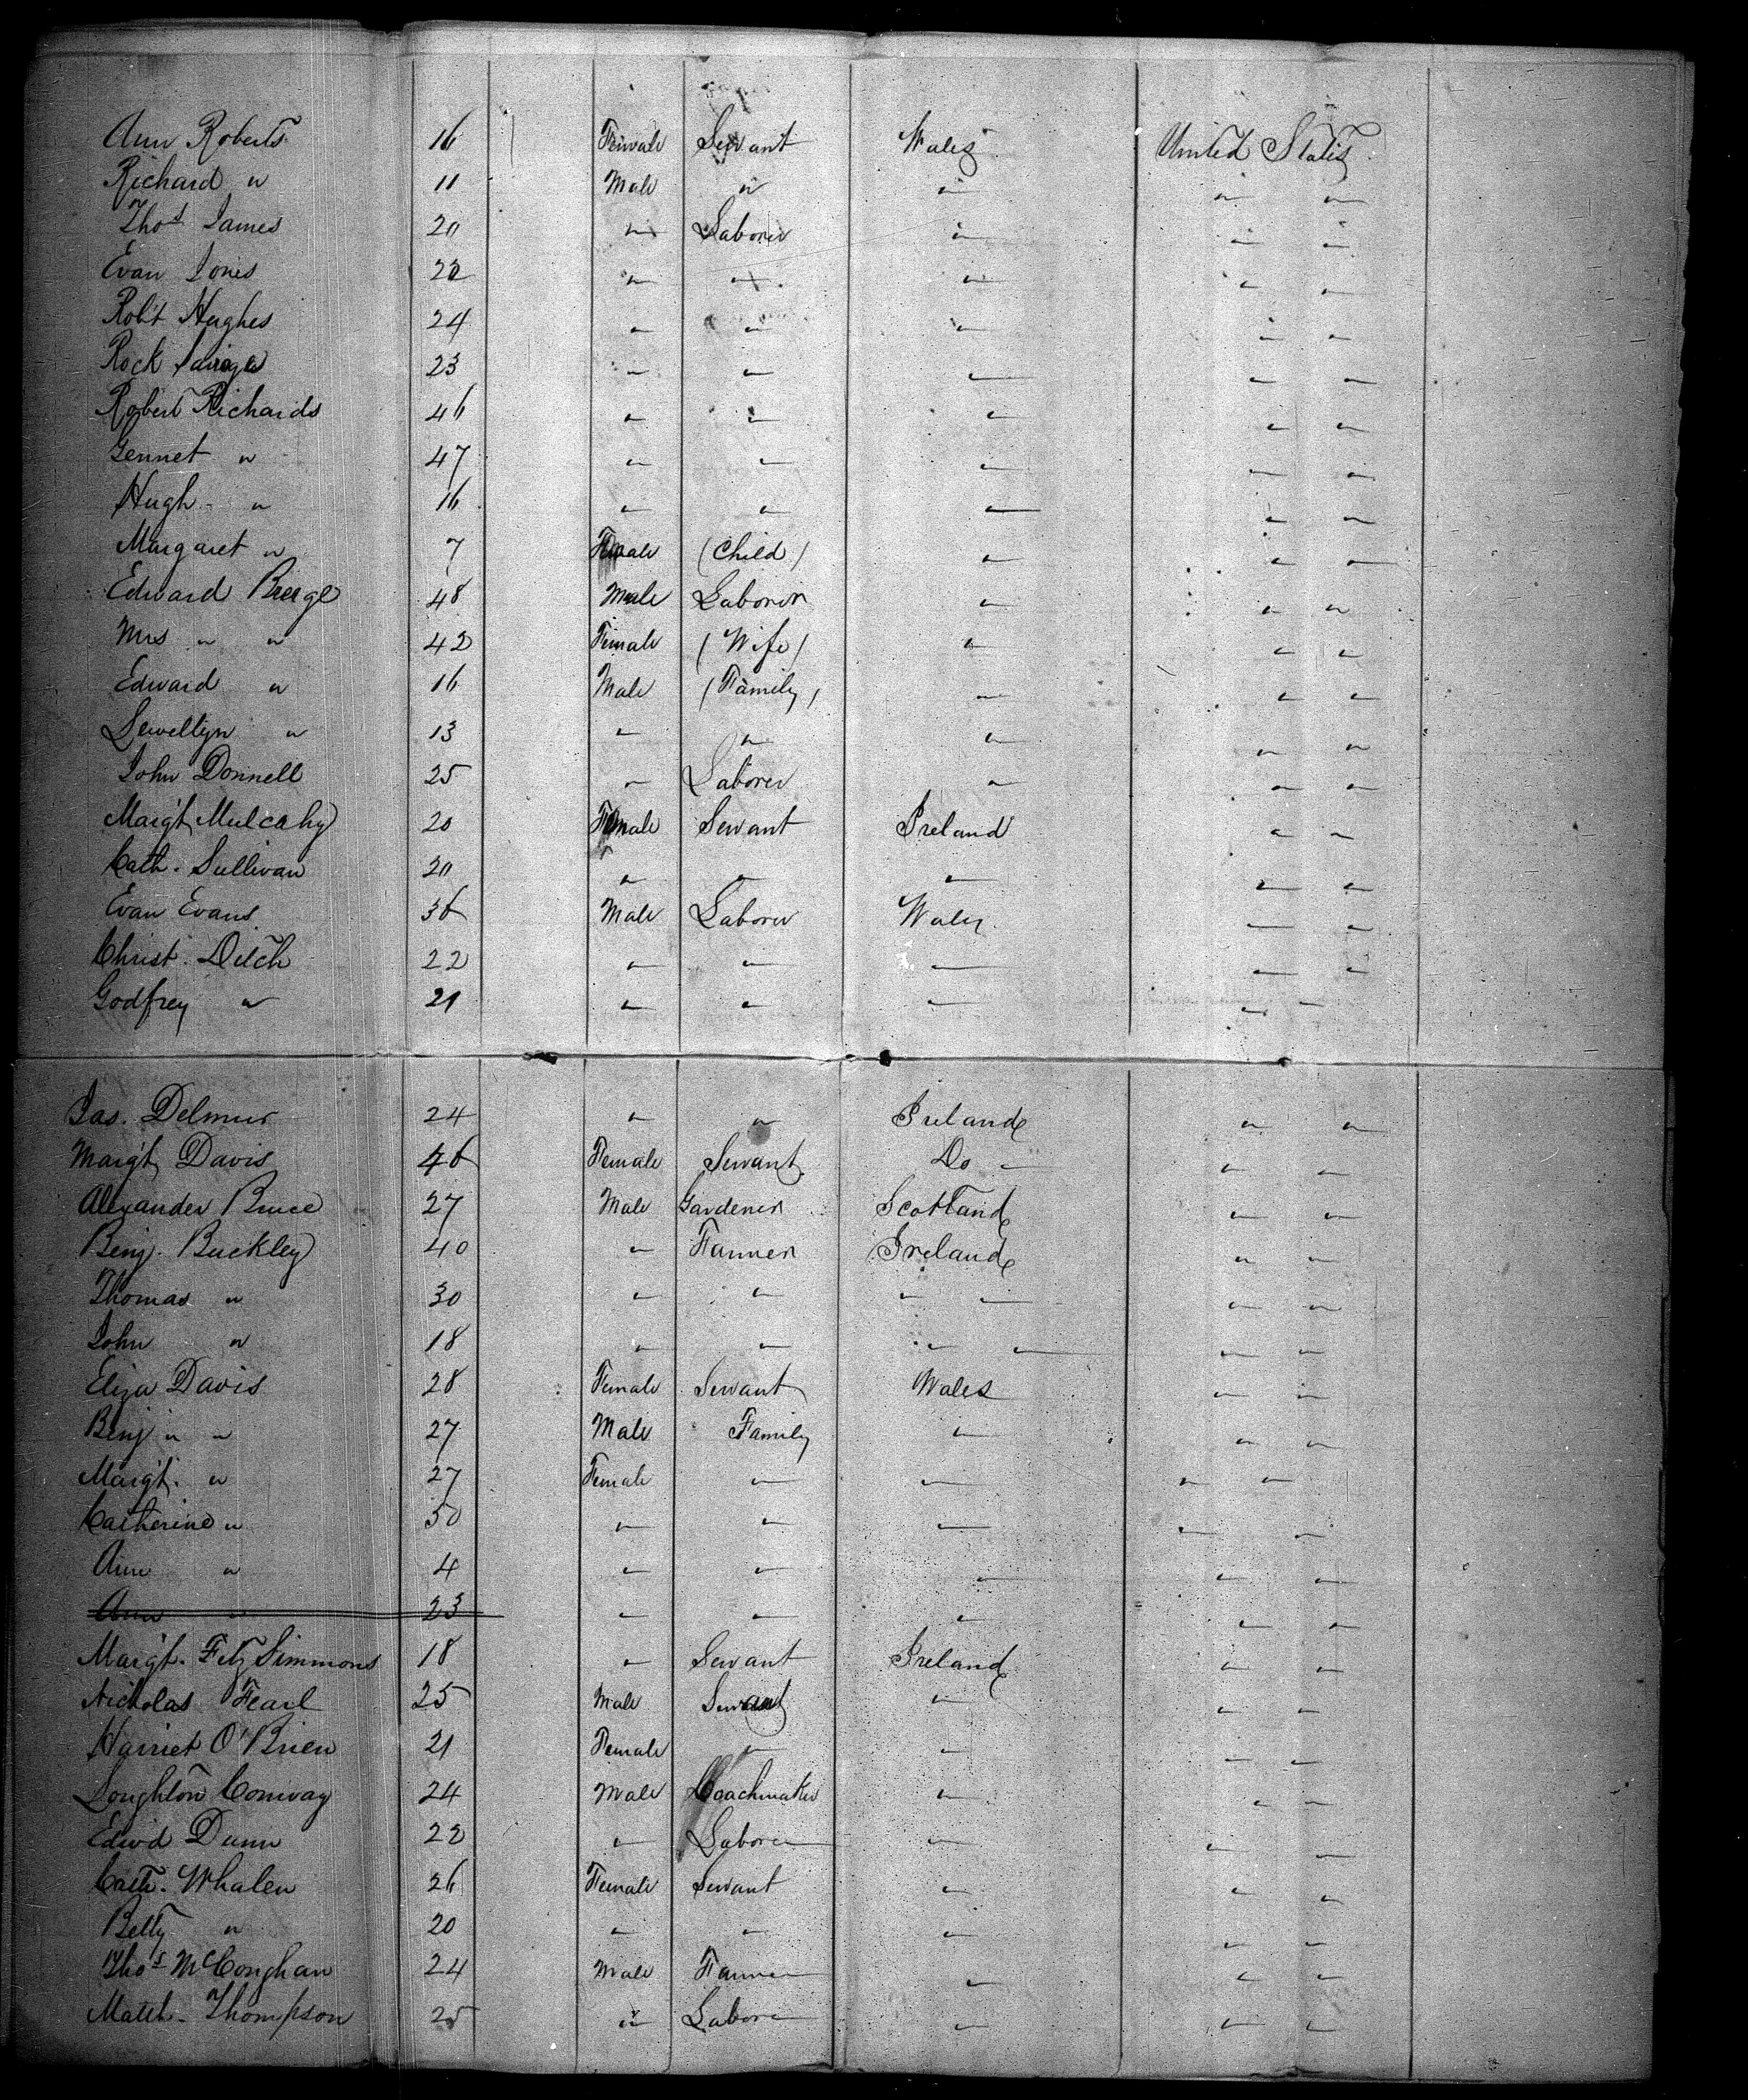 Ann Roberts 16 Female Servant Wales United States
Richard " 11 Male " " " "
Thos James 20 " Laborer " " "
Evan Jones 22 " " " " "
Robt Hughes 24 " " " " "
Rock 23 " " " " "
Robert Richards 46 " " " " "
Gennet " 47 " " " " "
Hugh " 16 " " " " "
Margaret " 7 Female (Child) " " "
Edward 48 Male Laborer " " "
Mrs " " 42 Female (Wife) " " "
Edward " 16 Male (Family) " " "
Lewellyn " 13 " " " " "
John Donnell 25 " Laborer " " "
Margt Mulcahy 20 Female Servant Ireland " "
Cath. Sullivan 20 " " " " "
Evan Evans 36 Male Laborer Wales " "
Christ. Ditch 22 " " " " "
Godfrey " 21 " " " " "
Jas. Delmur 24 " " Ireland " "
Margt Davis 46 Female Servant Do " "
Alexander Bruce 27 Male Gardener Scotland " "
Benj. Buckley 40 " Farmer Ireland " "
Thomas " 30 " " " " " "
John " 18 " " " " " "
Eliza Davis 28 Female Servant Wales " "
Benj " " 27 Male Family " " "
Margt. " 27 Female " " " "
Catherine " 50 " " " " "
Ann " 4 " " " " "
Ann " 23 " " " " "
Margt. Fitz Simmons 18 " Servant Ireland " "
Nicholas Fearl 25 Male Servant " " "
Harriet O'Brien 21 Female " " " "
Loughlon Conway 24 Male Coachmaker " " "
Edwd Dunn 22 " Laborer " " "
Cath. Whalen 26 Female Servant " " "
Betty " 20 " " " " "
Thos McConghan 24 Male Farmer " " "
Matth. Thompson 25 " Laborer " " "